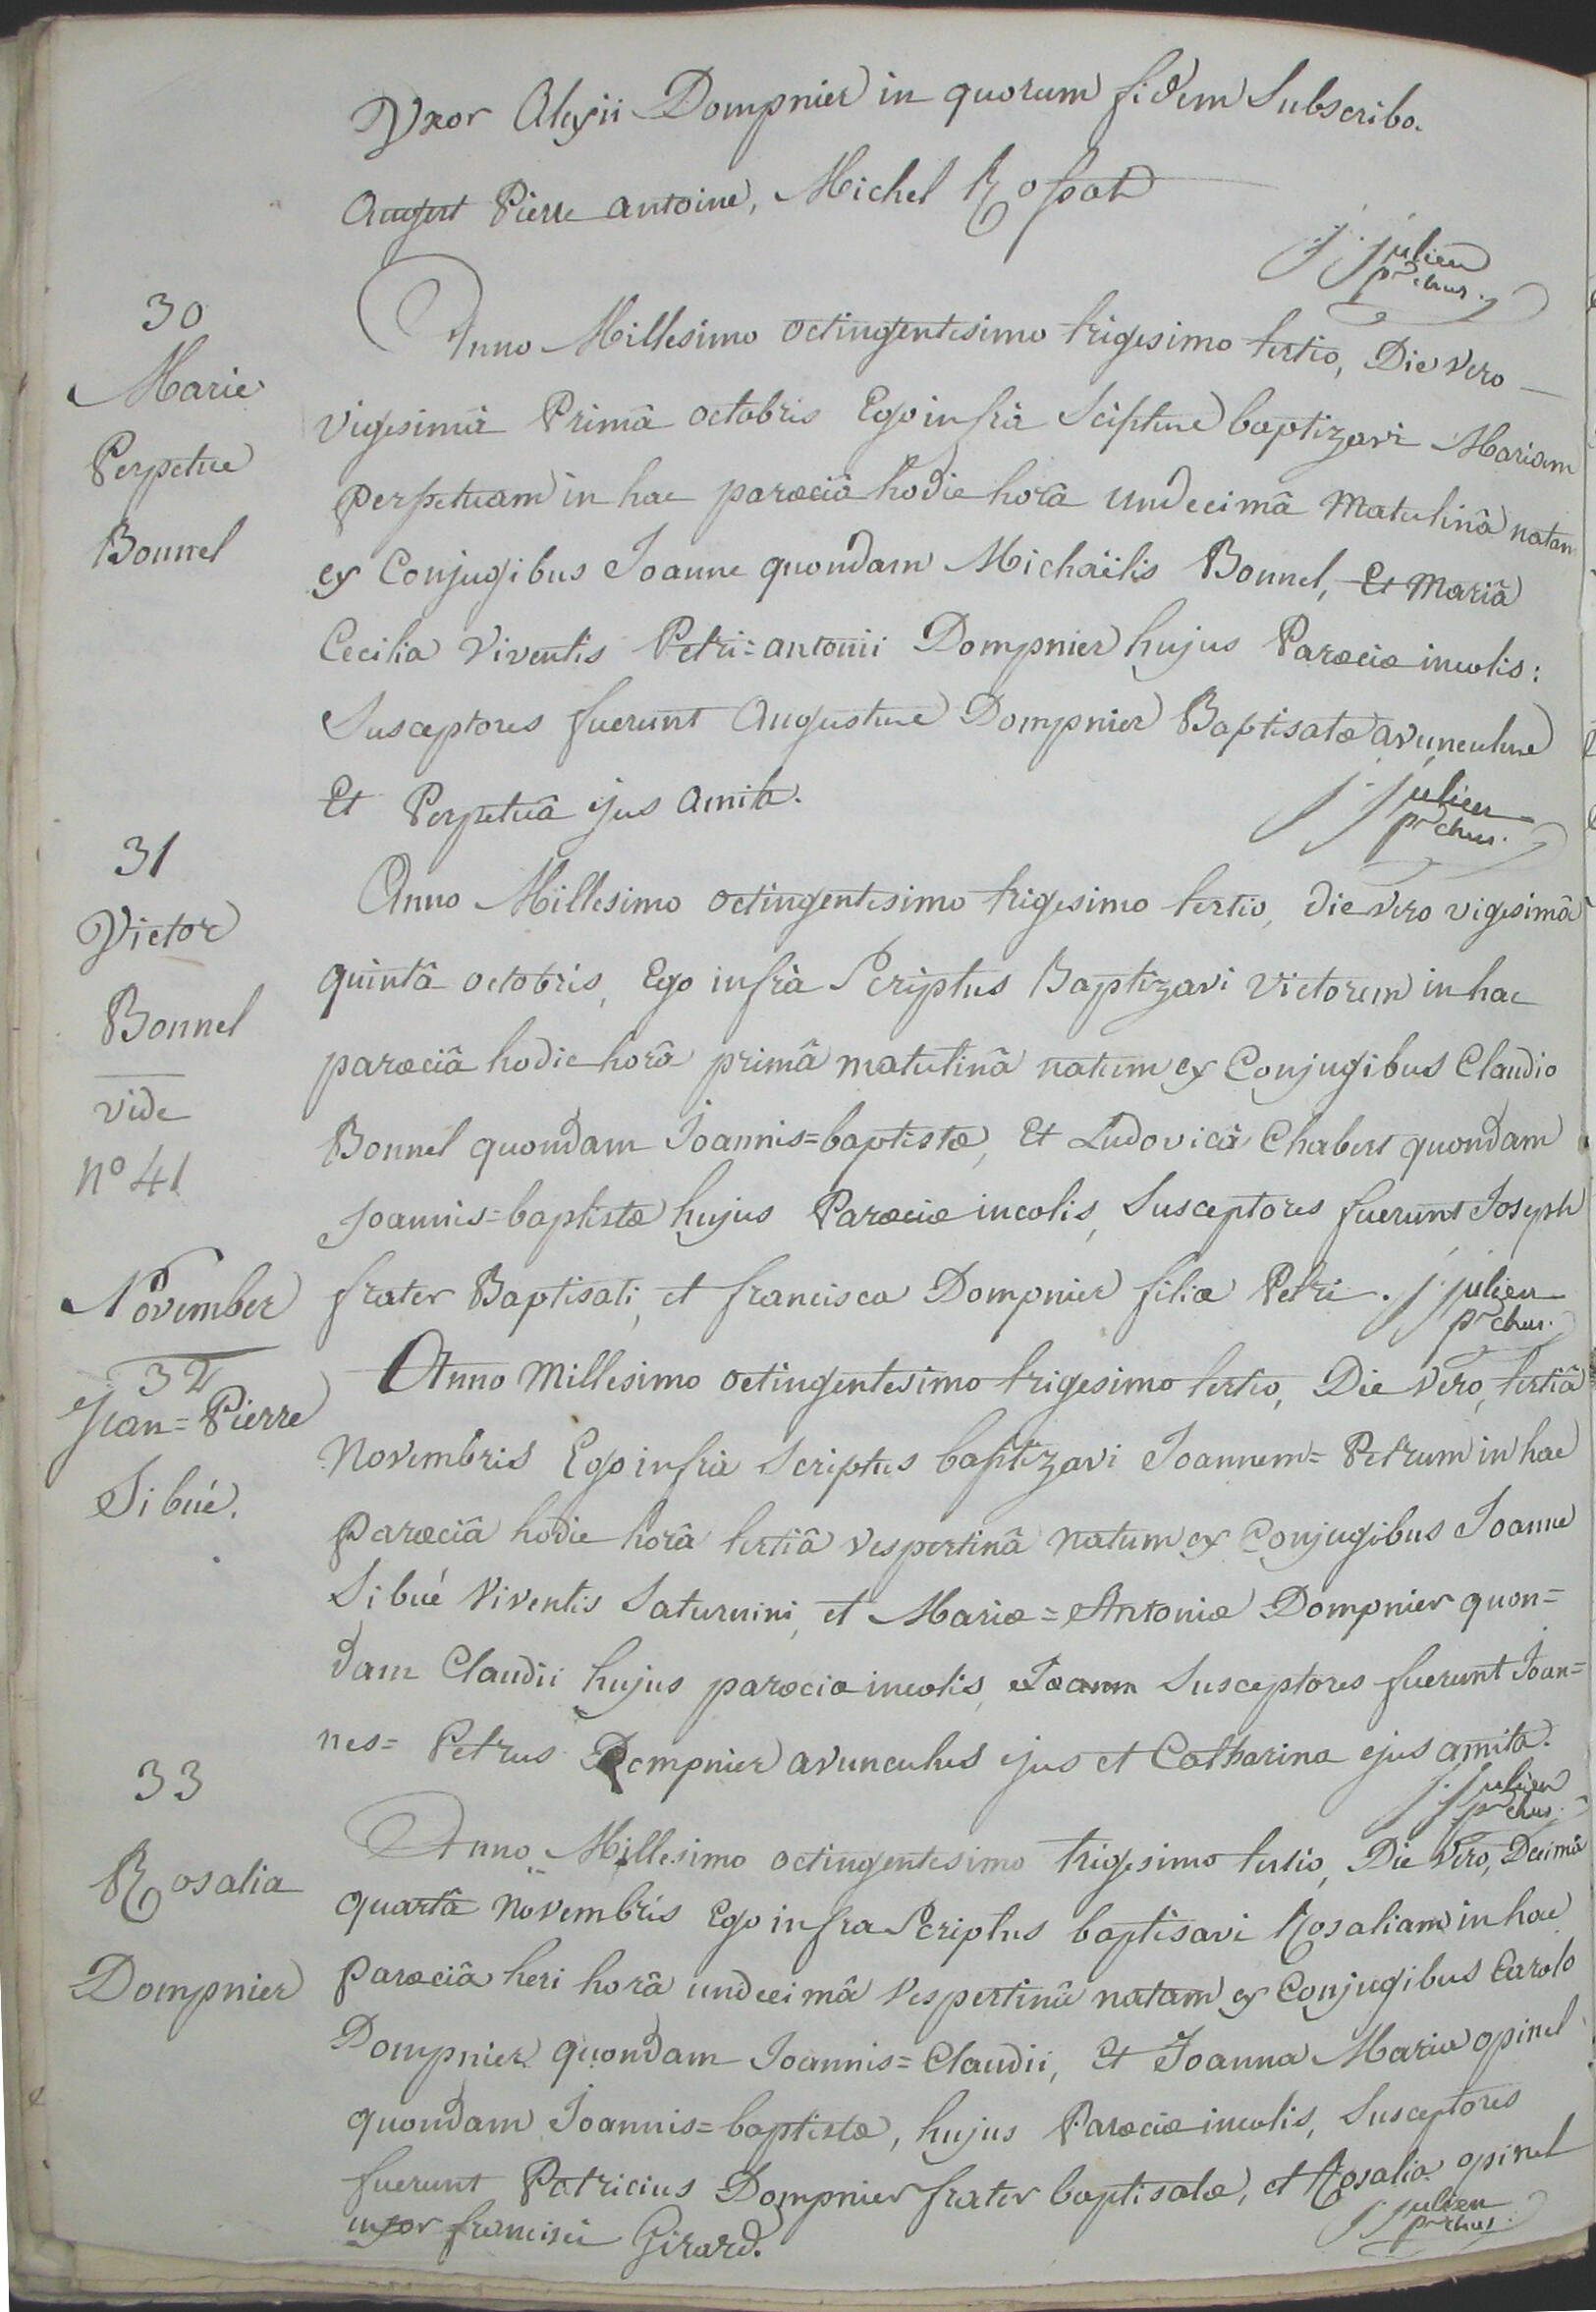 Uxor Alexii Dompnier in quorum fidem Subscribo.
Augert Pierre antoine, Michel Rossat
j. julien
pr chus.
30
Marie
Perpetue
Bonnel
Anno Millesimo octingentesimo trigesimo tertio, Die vero
vigesimâ Primâ octobris Ego infrà Sciptus baptizavi Mariam
perpetuam in hac parœciâ hodie horâ undecimâ Matutinâ natam
ex Conjugibus Joanne quondam Michaëlis Bonnel, Et Mariâ
Cecilia viventis Petri=antonii Dompnier hujus Parœciæ incolis:
Susceptores fuerunt Augustus Dompnier Baptisatæ avunculus
Et Perpetuâ ejus amita.
j. julien
pr chus.
31
Victor
Bonnel
vide
n° 41
Anno Millesimo octingentesimo trigesimo tertio, die vero vigesimâ
quintâ octobris, Ego infrà Scriptus Baptizavi victorem in hac
parœciâ hodie horâ primâ matutinâ natum ex Conjugibus Claudio
Bonnel quondam Joannis=baptistæ, Et Ludovicâ Chabert quondam
Joannis=baptistæ hujus Parœciæ incolis, Susceptores fuerunt Joseph
frater Baptisati, et francisca Dompnier filia Petri. j. julien
pr chus.
November
32
Jean=Pierre
Sibué.
Anno Millesimo octingentesimo trigesimo tertio, Die vero, tertiâ
Novembris Ego infrà Scriptus baptizavi Joannem=Petrum in hac
parœciâ hodie horâ tertiâ vespertinâ natum ex Conjugibus Joanne
Sibué viventis Saturnini, et Mariæ=Antoniæ Dompnier quon=
dam Claudii hujus parœciæ incolis, Joann Susceptores fuerunt Joan=
nes=Petrus Dompnier avunculus ejus et Catharina ejus amita.
j. julien
pr chus.
33
Rosalia
Dompnier
Anno Millesimo octingentesimo trigesimo tertio, Die vero, Decimâ
quartâ Novembris Ego infra Scriptus baptisavi Rosaliam in hac
parœciâ heri horâ undecimâ vespertinâ natam ex Conjugibus Carolo
Dompnier quondam Joannis=Claudii, Et Joanna Maria opinel
quondam Joannis=baptistæ, hujus Parœciæ incolis, Susceptores
fuerunt Patricius Dompnier frater baptisatæ, et Rosalia opinel
uxor francisci Girard.
j. julien
pr chus.